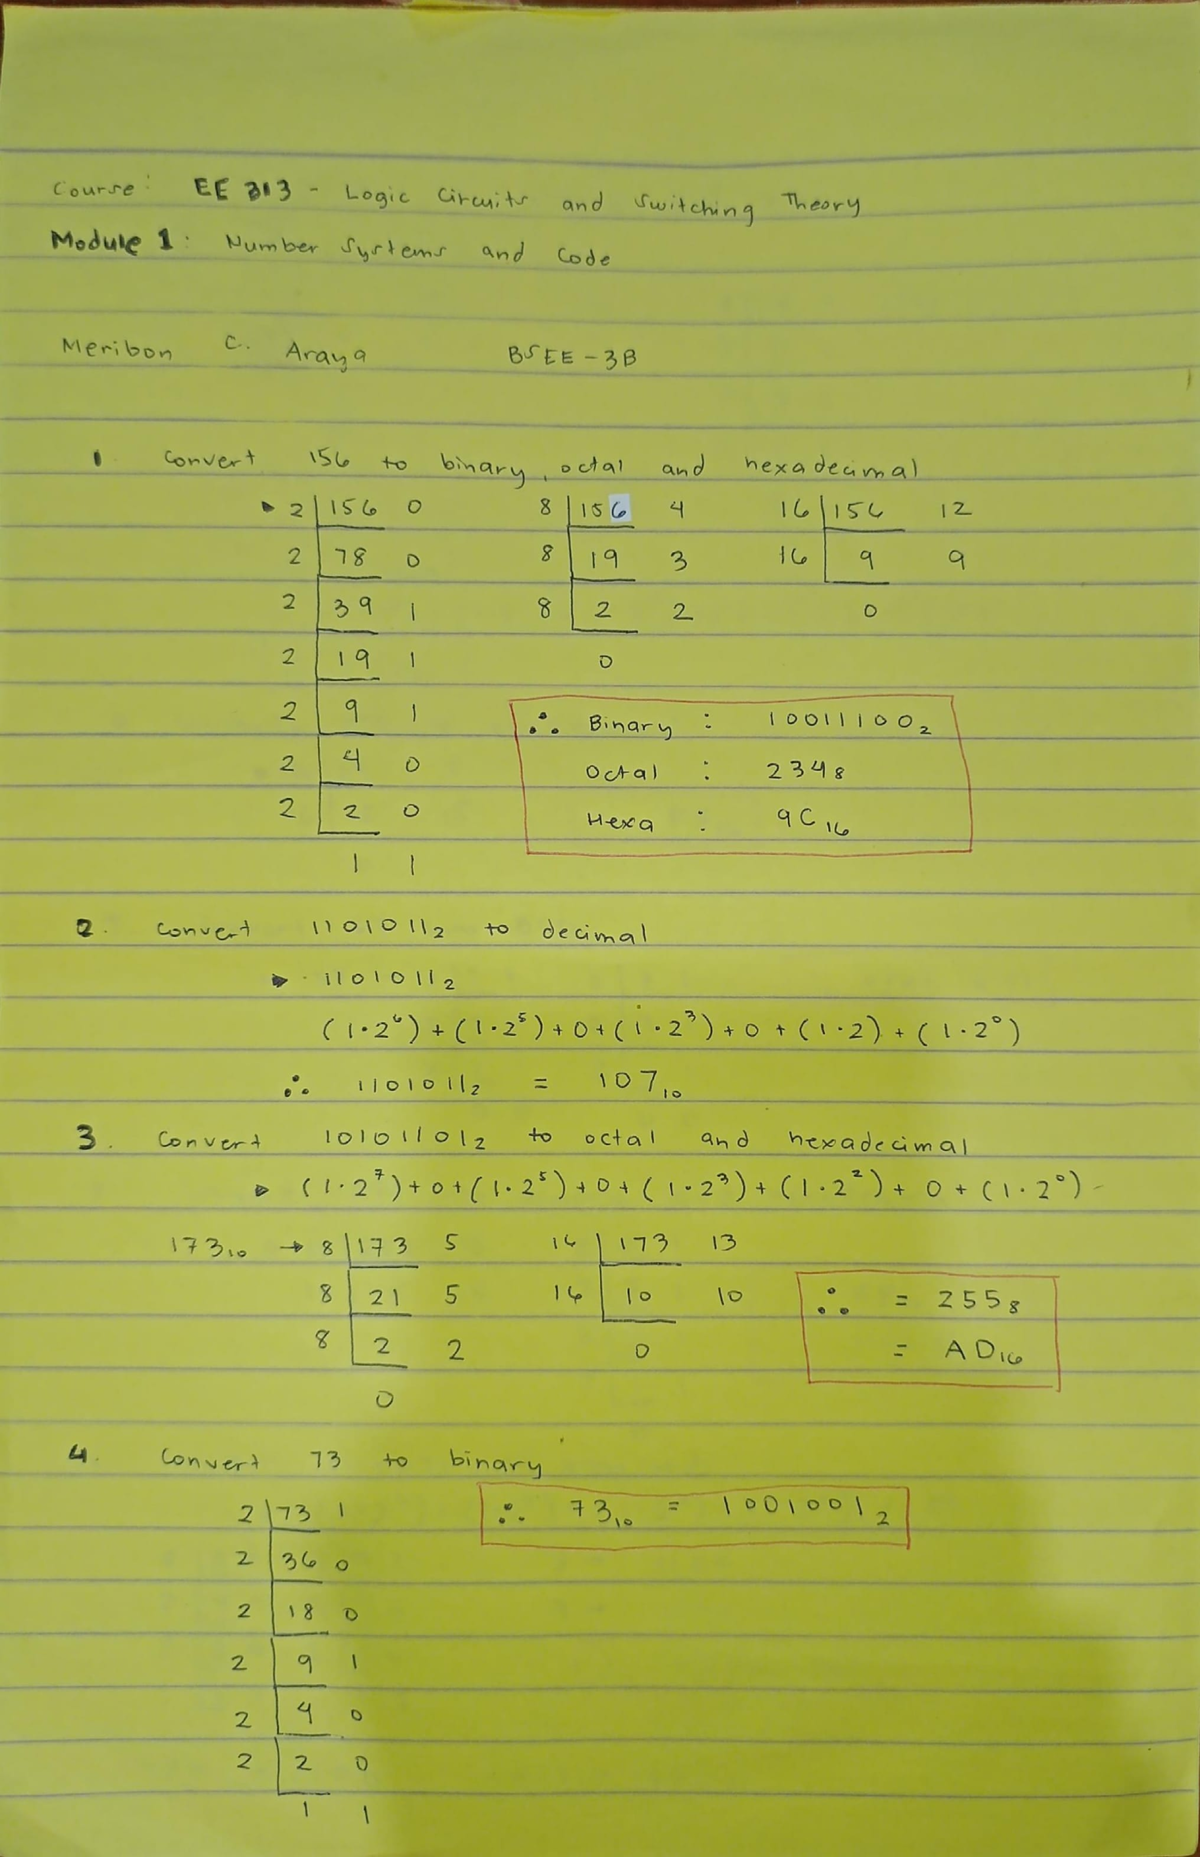 Course: EE 313 - Logic Circuits and Switching Theory
Module 1: Number Systems and Code
Meribon C. Araya BSEE-3B
1 Convert 156 to binary, octal and hexadecimal
2 156 0 8 156 4 16 156 12
2 78 0 8 19 3 16 9 9
2 39 1 8 2 2 0
2 19 1 0
2 9 1 ∴ Binary : 10011100₂
2 4 0 Octal : 234₈
2 2 0 Hexa : 9C₁₆
1 1
2. Convert 1101011₂ to decimal
1101011₂
(1·2⁶) + (1·2⁵) + 0 + (1·2³) + 0 + (1·2) + (1·2⁰)
∴ 1101011₂ = 107₁₀
3. Convert 10101101₂ to octal and hexadecimal
(1·2⁷) + 0 + (1·2⁵) + 0 + (1·2³) + (1·2²) + 0 + (1·2⁰)
173₁₀ → 8 173 5 16 173 13
8 21 5 16 10 10 ∴ = 255₈
8 2 2 0 = AD₁₆
0
4. Convert 73 to binary
2 73 1 ∴ 73₁₀ = 1001001₂
2 36 0
2 18 0
2 9 1
2 4 0
2 2 0
1 1